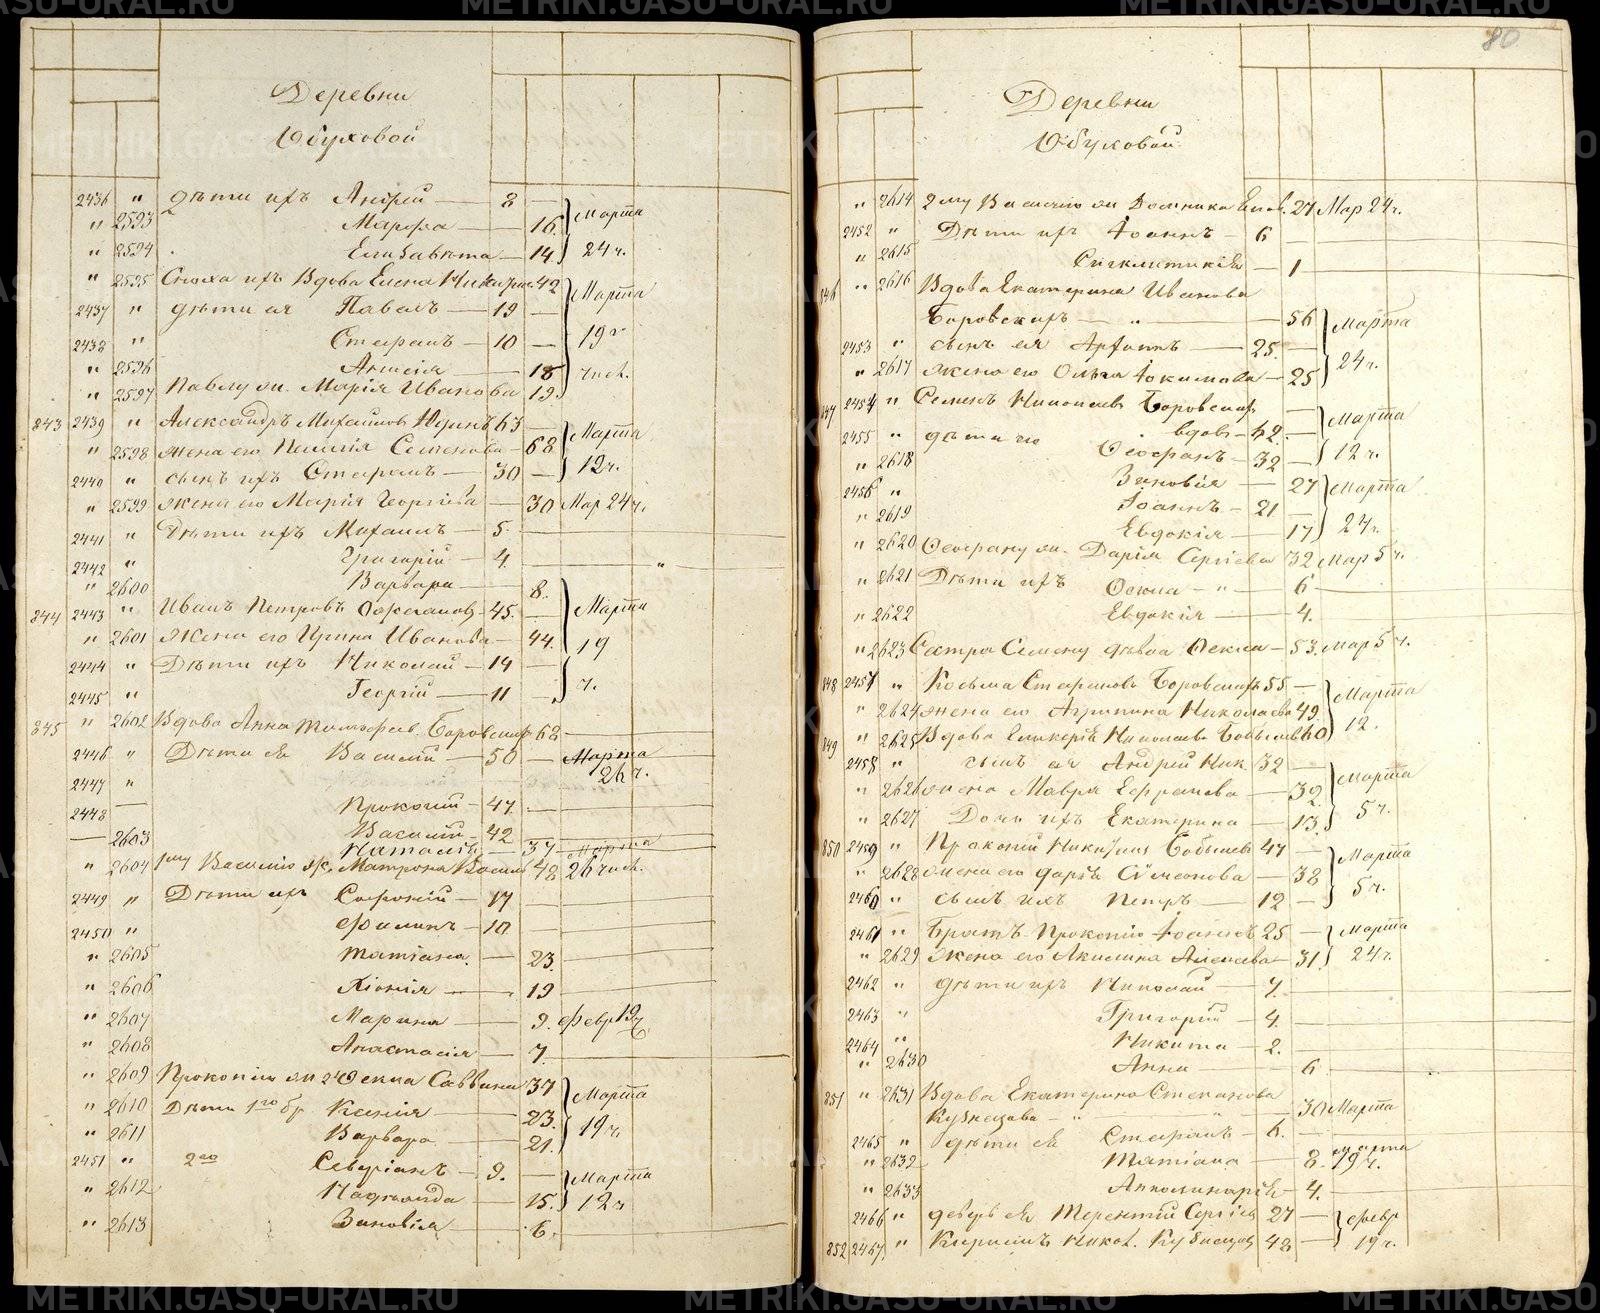 Деревни
Обуховой
2436 " Дѣти ихъ Андрей — 8 —
" 2593 Марѳа — 16 Марта
" 2594 Елизавѣта — 14 24 ч.
" 2595 Сноха ихъ Вдова Елена 42 Марта
2437 " дѣти ея Павелъ — 19 —
2438 " Стефанъ — 10 — 19 ч
" 2596 Анисія — 18 числ.
" 2597 Павлу ж. Марія Иванова 19
843 2439 " Александръ Михаиловъ 63 Марта
" 2598 жена его Семенова — 68
2440 " сынъ ихъ Стефанъ — 30 — 12 ч.
" 2599 жена его Марія Георгіева — 30 Мар 24 ч.
2441 " Дѣти ихъ Михаилъ — 5
2442 " Григорій — 4 "
" 2600 Варвара — 8.
844 2443 " Иванъ Петровъ 45 — Марта
" 2601 Жена его Ирина Иванова — 44. 19
2444 " Дѣти ихъ Николай — 14 —
2445 " Георгій — 11 — ч.
845 " 2602 Вдова Анна Тимофеев. Боровскихъ 68
2446 " Дѣти ея Василій — 50 — Марта
2447 " 26 ч.
2448 — Прокопій — 47 —
— 2603 Василій — 42
Наталія — 37 Марта
" 2604 1му Василію ж. Матрона 48 26 числ.
2449 " Дѣти ихъ Софоній — 17 —
2450 " Филипъ — 10 —
" 2605 Татіана — 23.
" 2606 Хіонія — 19
" 2607 Марина — 9. Февр 19 ч.
" 2608 Анастасія — 7.
" 2609 Прокопію ж Ѳекла Саввина 37 Марта
" 2610 Дѣти 1го бр Ксенія — 23.
" 2611 Варвара — 21. 19 ч.
2451 " 2го Северіанъ — 9. — Марта
" 2612 Надежда — 15. 12 ч
" 2613 Зиновія — 6.
80
Деревни
Обуховой
" 2614 2му Василию ж Домника 27 Мар 24 ч.
2452 " Дѣти ихъ Іоаннъ — 6 —
" 2615 Сигклитикія — 1
846 " 2616 Вдова Екатерина Иванова
Боровскихъ — " — 56 Марта
2453 " сынъ ея 25. —
" 2617 жена его Ольга Іокимова — 25 24 ч.
847 2454 " Семенъ Николаевъ Боровскихъ Марта
2455 " дѣти его вдов — 62. —
" 2618 Ѳеофанъ — 32 — 12 ч.
2456 " Зиновія — 27 Марта
" 2619 Іоаннъ — 21 —
Евдокія — 17 24 ч.
" 2620 Ѳеофану ж. Дарія Сергіева 32 Мар 5 ч.
" 2621 Дѣти ихъ Ѳекла — " — 6
" 2622 Евдокія — 4.
" 2623 Сестра Семену дѣвка Ѳекла — 53. Мар 5 ч.
848 2457 " Косьма Стефановъ Боровскихъ 55 — Марта
" 2624 жена его Агрипина Николаева 49
849 " 2625 Вдова Гликерія 60 12.
2458 " сынъ ея Андрей Ник 32 — Марта
" 2626 жена Мавра Ефремова — 39
" 2627 Дочь ихъ Екатерина — 13. 5 ч.
850 2459 " Прокопій 47 — Марта
" 2628 жена его Дарія Симеонова — 38
2460 " сынъ ихъ Петръ — 12 — 5 ч.
2461 " Братъ Прокопію Іоаннъ 25 — Марта
" 2629 жена его Акилина 31. 24 ч.
2462 " дѣти ихъ Николай — 7. —
2463 " Григорій — 4.
2464 " Никита — 2.
" 2630 Анна — 6
851 " 2631 Вдова Екатерина Степанова
Кузнецова — " — 30 Марта
2465 " дѣти ея Стефанъ — 6.
" 2632 Татіана — 8. 19 ч.
" 2633 Апполинарія — 4.
2466 " деверь ея Терентій Сергіев 27 — Февр
852 2467 " Кирилъ Никол. Кузнецов 48 — 19 ч.
METRIKI.GASO-URAL.RU